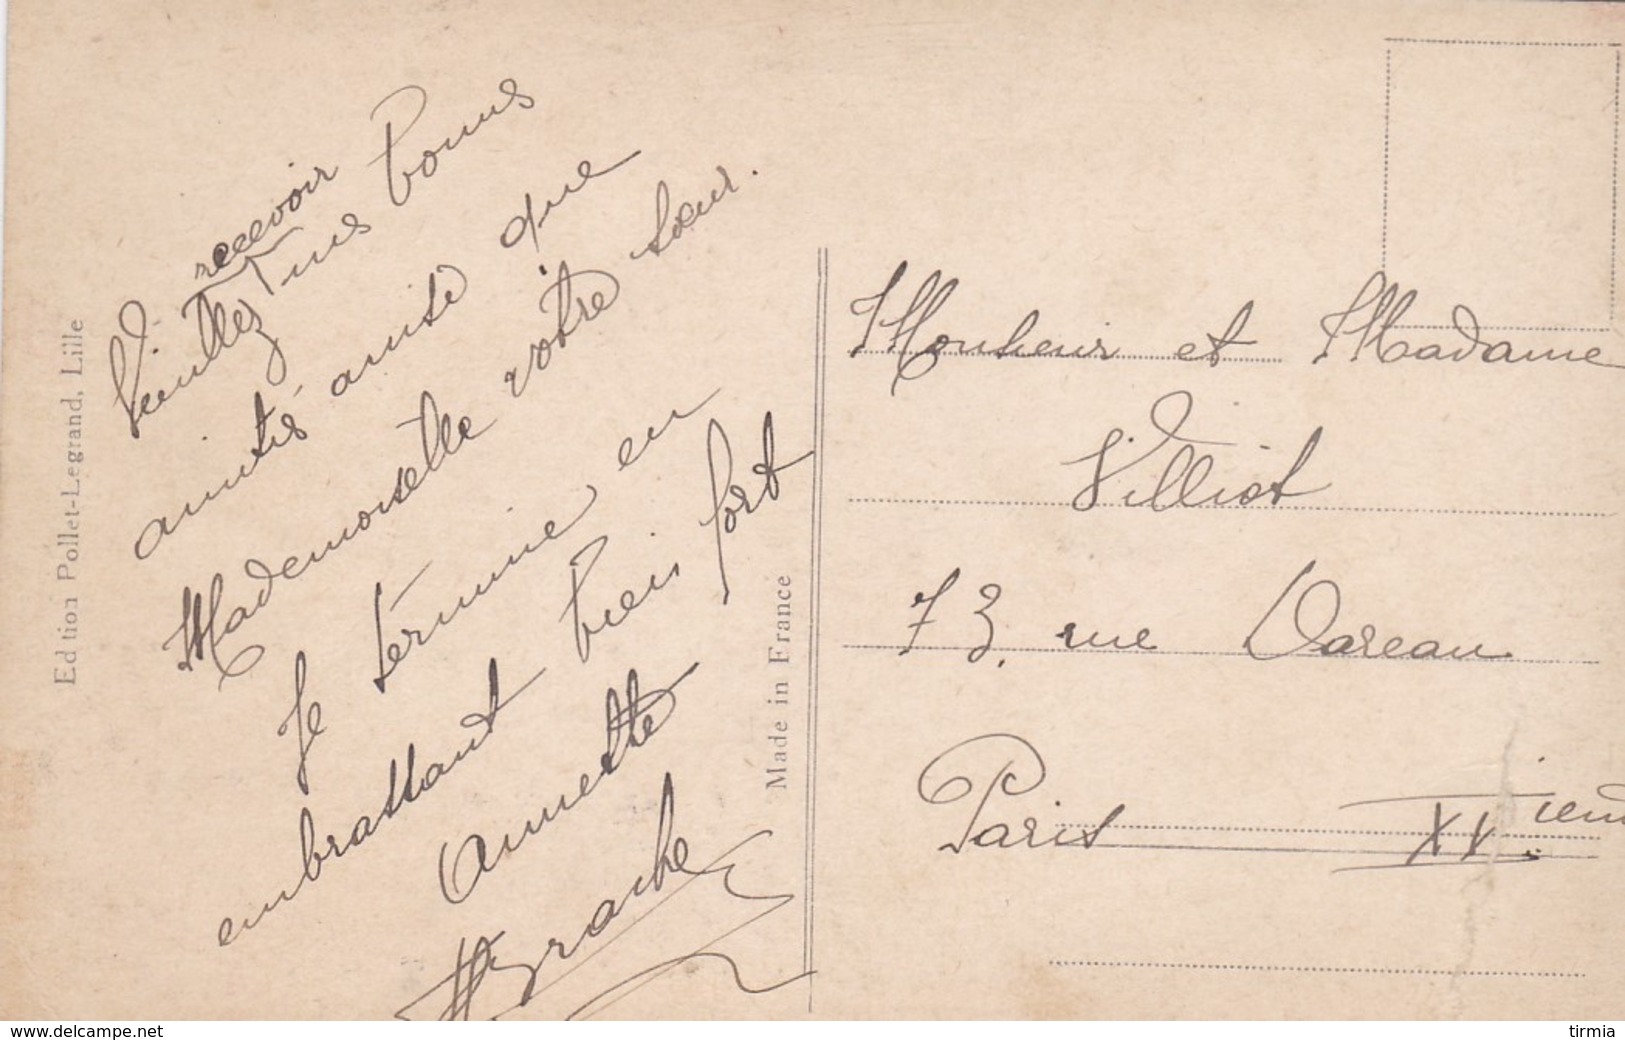 recevoir
Veuillez mes bonnes
amitiés ainsi que
Mademoiselle votre sœur.
Je termine en
embrassant bien fort
Annette
Edition Pollet-Legrand, Lille
Made in France
Monsieur et Madame
Villiot
73, rue Dareau
Paris XIV ième
www.delcampe.net
tirmia